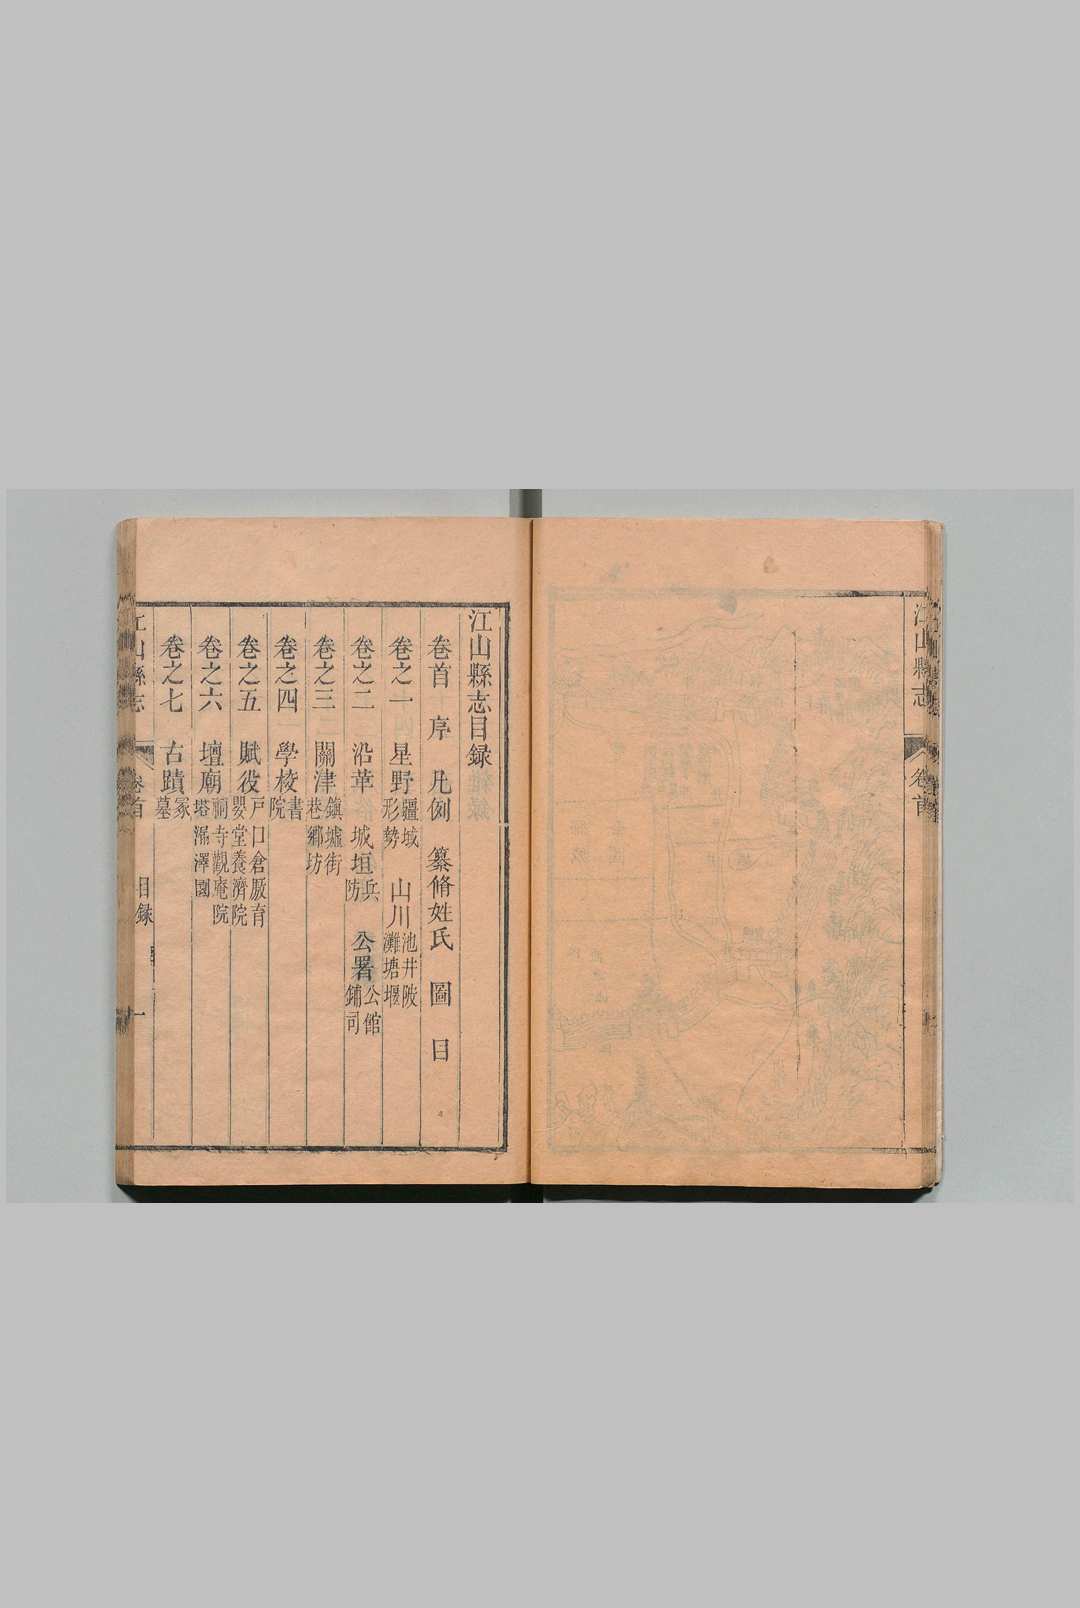 江山縣志
卷首
江山縣志目録
卷首 序 凡例 纂脩姓氏 圖 目
卷之一 星野 疆域 形勢 山川 池井陂 灘塘堰
卷之二 沿革 城垣 兵防 公署 公館 鋪司
卷之三 關津 鎮墟街 巷鄉坊
卷之四 學校 書院
卷之五 賦役 戸口倉厫育 嬰堂養濟院
卷之六 壇廟 祠寺觀庵院 塔漏澤園
卷之七 古蹟 冢墓
江山縣志
卷首
目録
一